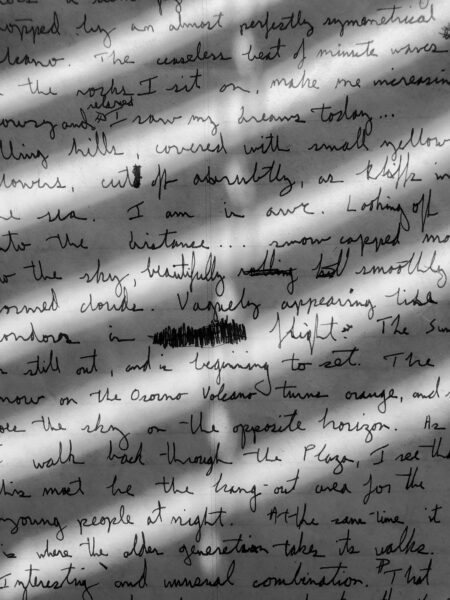 topped by an almost perfectly symmetrical
lcano. The ceaseless beat of minute waves
n the rocks I sit on, make me increasin
relaxed
owsy and I saw my dreams today...
lling hills, covered with small yellow
lowers, cut off abruptly, as kliffs in
he sea. I am in awe. Looking off
nto the distance... snow capped mo
the sky, beautifully smoothly
ormed clouds. Vaguely appearing like
ondors in flight. The Sun
s still out, and is beginning to set. The
now on the Osorno Volcano turns orange, and s
oes the sky on the opposite horizon. As
I walk back through the Plaza, I see tha
his most be the hang-out area for the
young people at night. At the same-time it
is where the older generation takes its walks.
Interesting and unusual combination. That